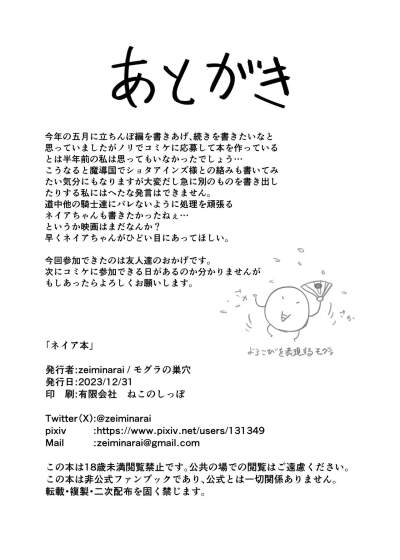 あとがき
今年の五月に立ちんぼ編を書きあげ、続きを書きたいなと
思っていましたがノリでコミケに応募して本を作っている
とは半年前の私は思ってもいなかったでしょう…
こうなると魔導国でショタアインズ様との絡みも書いてみ
たい気分にもなりますが大変だし急に別のものを書き出し
たりする私にはへたな発言はできません。
道中他の騎士達にバレないように処理を頑張る
ネイアちゃんも書きたかったねぇ…
というか映画はまだなんか？
早くネイアちゃんがひどい目にあってほしい。
今回参加できたのは友人達のおかげです。
次にコミケに参加できる日があるのか分かりませんが
もしあったらよろしくお願いします。
よろこびを表現するモグラ
「ネイア本」
発行者:zeiminarai / モグラの巣穴
発行日:2023/12/31
印　刷:有限会社　ねこのしっぽ
Twitter(X):@zeiminarai
pixiv :https://www.pixiv.net/users/131349
Mail :zeiminarai@gmail.com
この本は18歳未満閲覧禁止です。公共の場での閲覧はご遠慮ください。
この本は非公式ファンブックであり、公式とは一切関係ありません。
転載・複製・二次配布を固く禁じます。